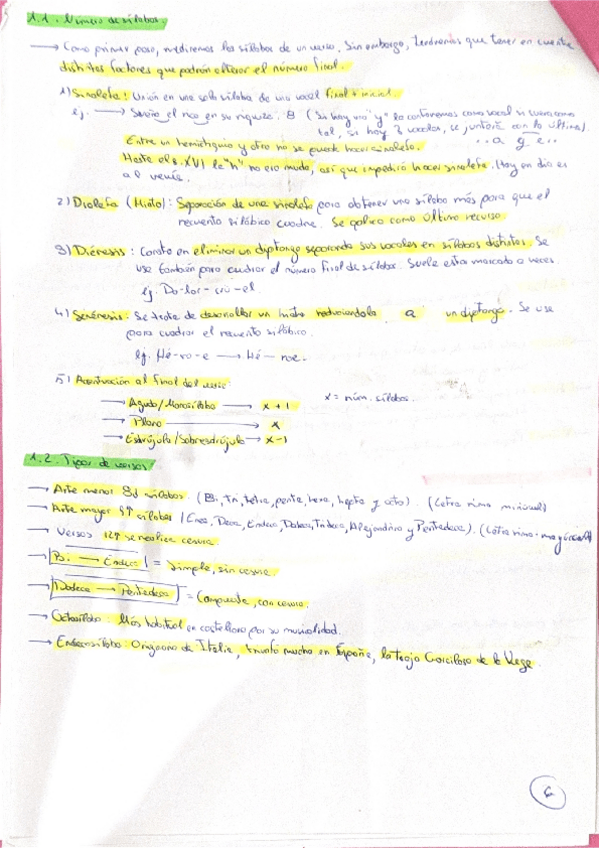 1.1. Número de sílabas.
→ Como primer paso, mediremos las sílabas de un verso. Sin embargo, tendremos que tener en cuenta
distintos factores que podrán alterar el número final.
1) Sinalefa: Unión en una sola sílaba de una vocal final + inicial.
ej. → el rico en su riqueza: 8 (Si hay una "y" la contaremos como vocal si suena como
tal, si hay 3 vocales, se juntará con la última).
Entre un hemistiquio y otro no se puede hacer sinalefa.
Hasta el s. XVI la "h" no era muda, así que impedirá hacer sinalefa. Hoy en día es
al
2) Dialefa (Hiato): Separación de una sinalefa para obtener una sílaba más para que el
recuento silábico cuadre. Se aplica como último recurso.
3) Diéresis: Consta en eliminar un diptongo separando sus vocales en sílabas distintas. Se
usa también para cuadrar el número final de sílabas. Suele estar marcado a veces.
ej. Do-lor- crü-el.
4) Sinéresis: Se trata de desarrollar un hiato reduciéndolo a un diptongo. Se use
para cuadrar el recuento silábico.
ej. Hé-ro-e → Hé-roe.
5) Acentuación al final del verso:
→ Aguda/Monosílaba → x+1 x = núm. sílabas.
→ Plana → x
→ Esdrújula/Sobresdrújula → x-1
1.2. Tipos de versos
→ Arte menor 8↓ sílabas. (Bi, tri, tetra, penta, hexa, hepta y octo). (Letra rima minúscul)
→ Arte mayor 9↑ sílabas (Enea, Deca, Endeca, Dodeca, Trideca, Alejandrino y Pentadeca). (Letra rima: mayúscul)
→ Versos 12↑ se realiza cesura.
→ Bi. → Endeca = Simple, sin cesura.
→ Dodeca → Pentadeca = Compuesto, con cesura.
→ Octosílabo: Más habitual en castellano por su musicalidad.
→ Endecasílabo: Originario de Italia, triunfó mucho en España, la trajo Garcilaso de la Vega.
6